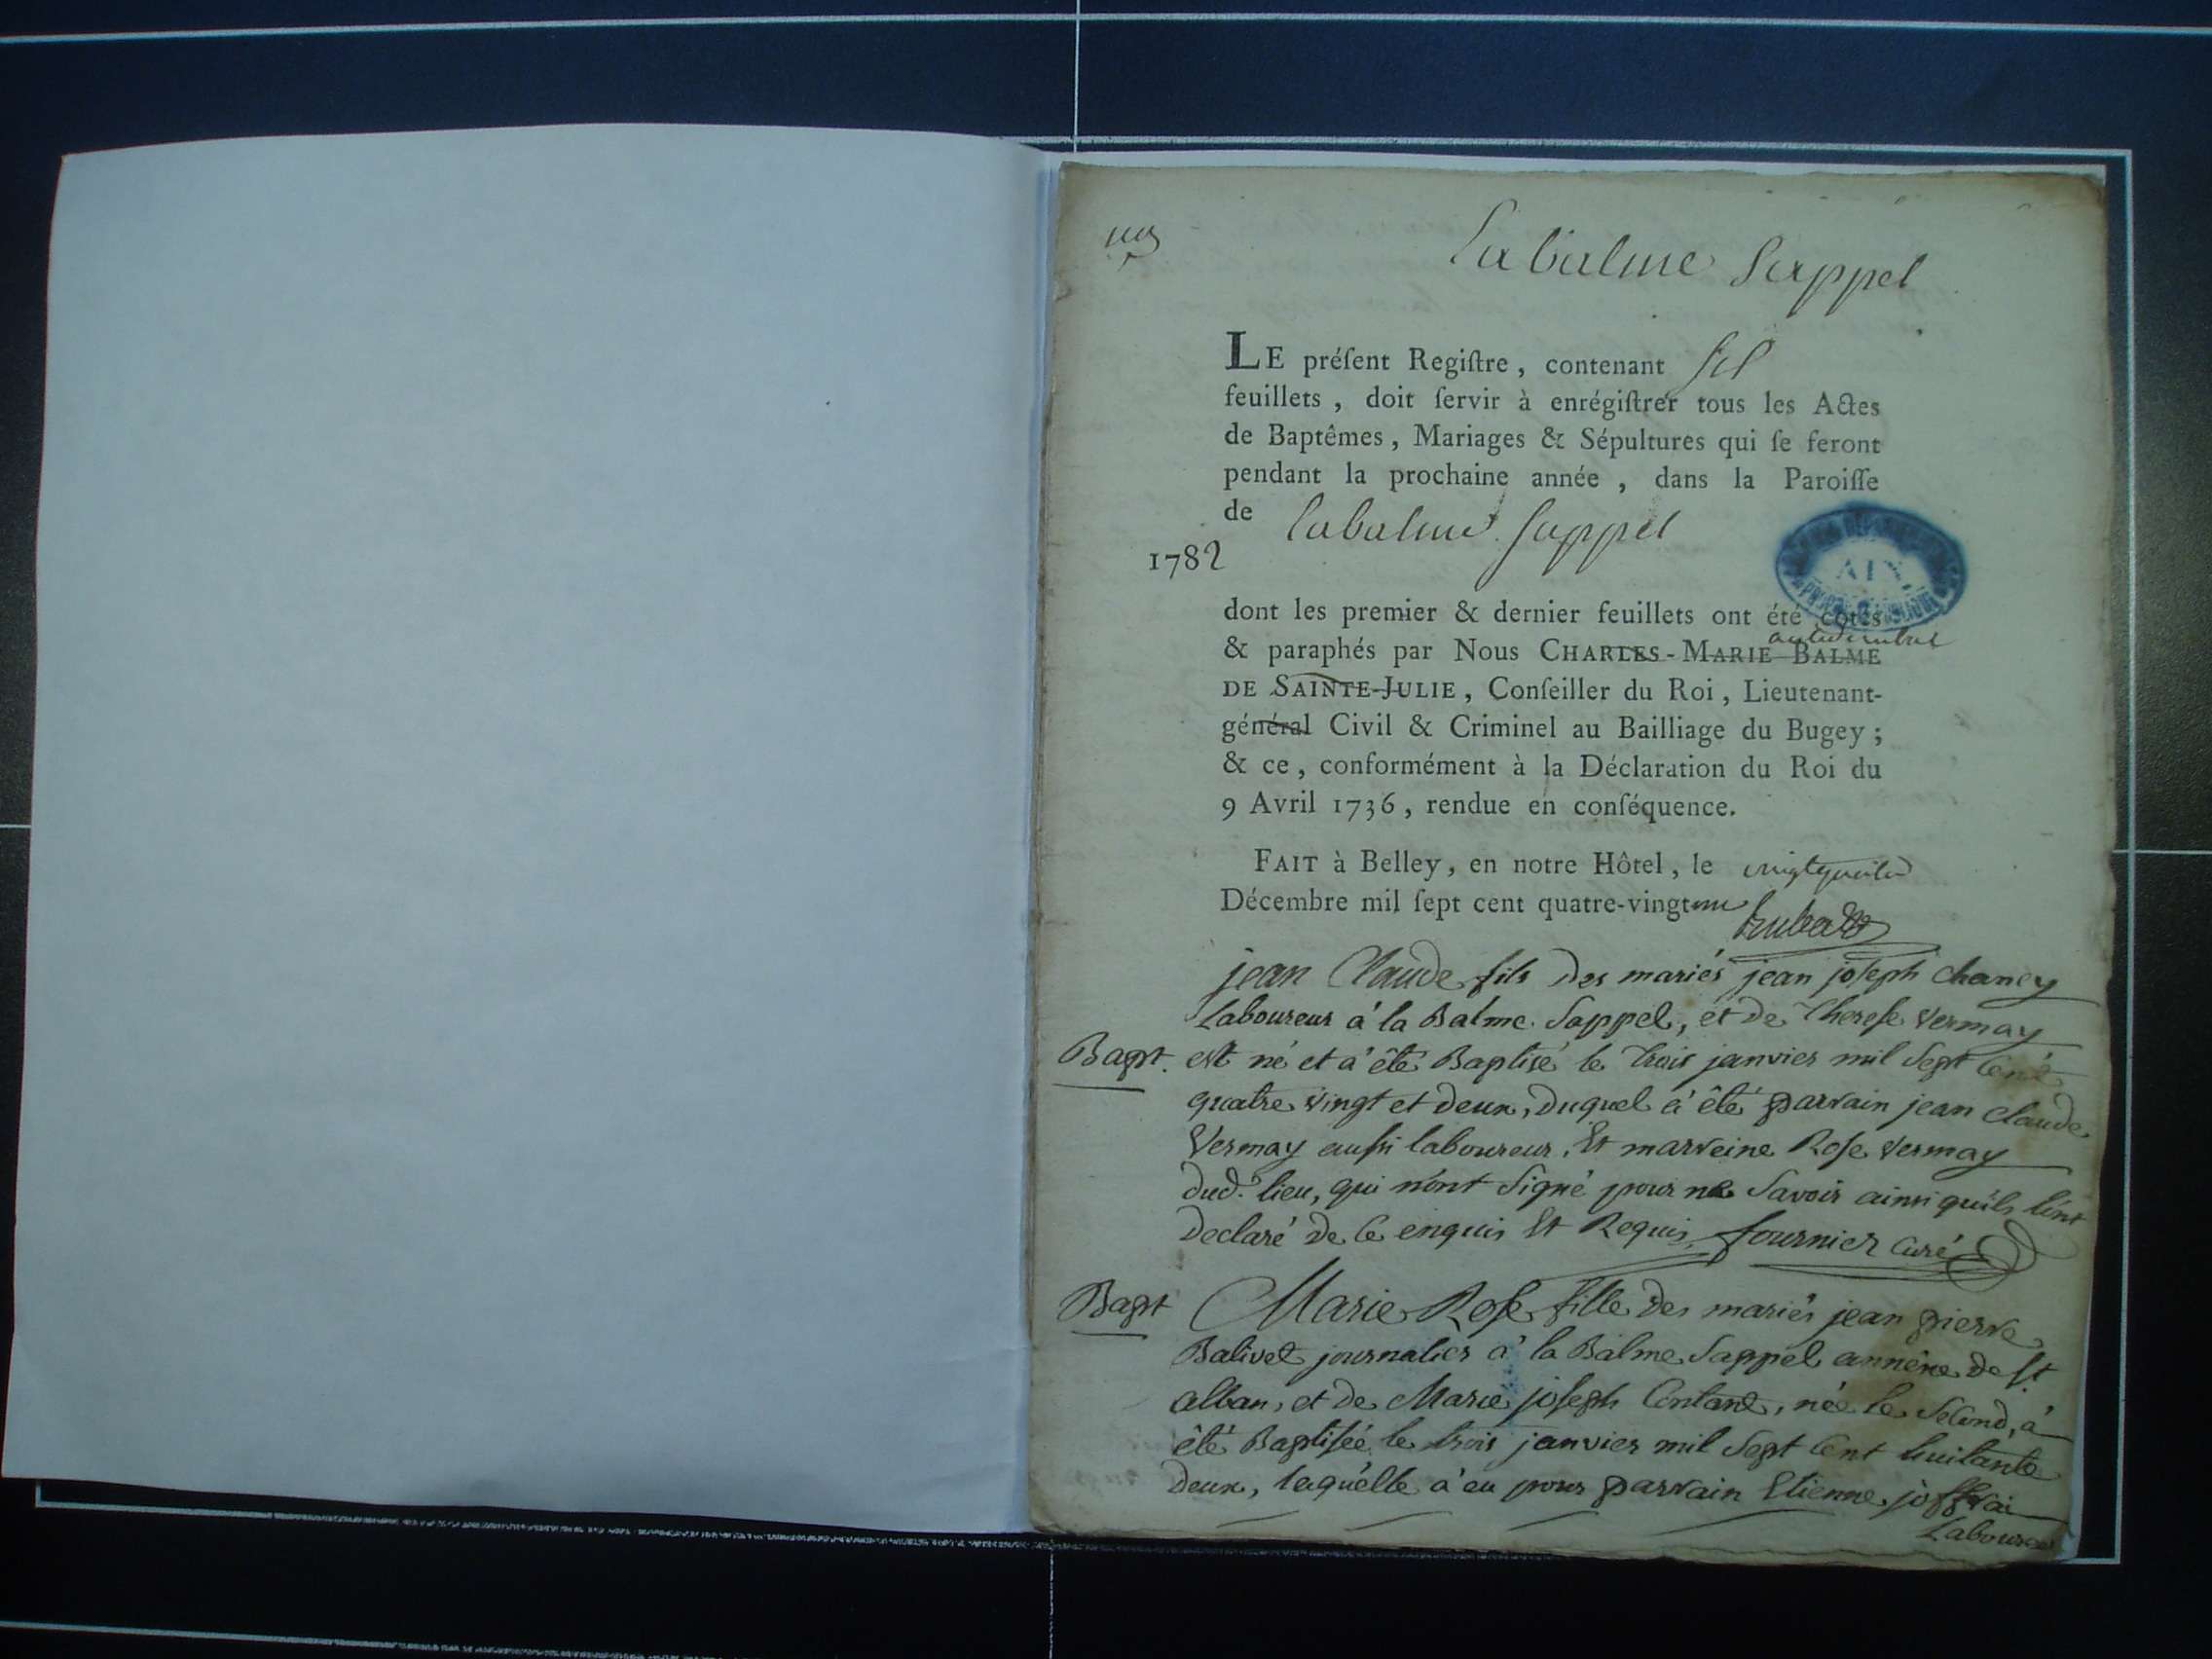 Labalme Sappel
LE préſent Regiſtre, contenant six
feuillets, doit ſervir à enrégiſtrer tous les Actes
de Baptêmes, Mariages & Sépultures qui ſe feront
pendant la prochaine année, dans la Paroiſſe
de labalme sappel
1782
AIN
dont les premier & dernier feuillets ont été cotés
& paraphés par Nous CHARLES-MARIE BALME
DE SAINTE-JULIE, Conſeiller du Roi, Lieutenant-
général Civil & Criminel au Bailliage du Bugey;
& ce, conformément à la Déclaration du Roi du
9 Avril 1736, rendue en conſéquence.
FAIT à Belley, en notre Hôtel, le
Décembre mil ſept cent quatre-vingt un
jean Claude fils des mariés jean joseph chaney
Laboureur à la Balme Sappel, et de Therese Vermay
Bapt. est né et a été Baptisé le trois janvier mil Sept Cent
quatre vingt et deux, duquel a été parrain jean claude
Vermay aussi laboureur, Et marreine Rose Vermay
dud. lieu, qui n'ont Signé pour ne Savoir ainsi qu'ils l'ont
declaré de ce enquis Et Requis. fournier Curé
Bapt Marie Rose fille des mariés jean pierre
Balivet journalier à la Balme Sappel annexe de St
alban, et de Marie joseph Contand, née le Second, à
été Baptisée le trois janvier mil Sept Cent huitante
deux, laquelle a eu pour parrain Etienne joffrai
Laboureur